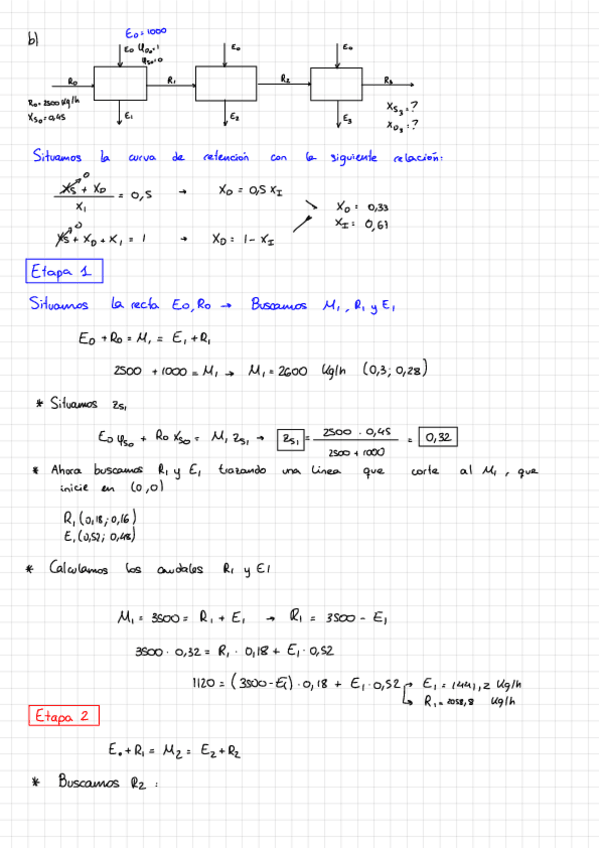 b)
E₀=1000
E₀ y_D₀=1
y_S₀=0
E₀
E₀
R₀
R₁
R₂
R₃
R₀=2500 Kg/h
X_S₀=0,45
E₁
E₂
E₃
X_S₃=?
X_D₃=?
Situamos la curva de retención con la siguiente relación:
(X_S⁰ + X_D)/X_I = 0,5 → X_D = 0,5 X_I
X_D = 0,33
X_I = 0,61
X_S⁰ + X_D + X_I = 1 → X_D = 1 - X_I
Etapa 1
Situamos la recta E₀, R₀ → Buscamos M₁, R₁ y E₁
E₀ + R₀ = M₁ = E₁ + R₁
2500 + 1000 = M₁ → M₁ = 2600 Kg/h (0,3; 0,28)
* Situamos z_S₁
E₀ y_S₀ + R₀ X_S₀ = M₁ z_S₁ → z_S₁ = (2500 · 0,45)/(2500 + 1000) = 0,32
* Ahora buscamos R₁ y E₁ trazando una linea que corte al M₁, que
inicie en (0,0)
R₁ (0,18; 0,16)
E₁ (0,52; 0,48)
* Calculamos los caudales R₁ y E₁
M₁ = 3500 = R₁ + E₁ → R₁ = 3500 - E₁
3500 · 0,32 = R₁ · 0,18 + E₁ · 0,52
1120 = (3500 - E₁) · 0,18 + E₁ · 0,52 → E₁ = 1441,2 Kg/h
→ R₁ = 2058,8 Kg/h
Etapa 2
E₀ + R₁ = M₂ = E₂ + R₂
* Buscamos R₂ :